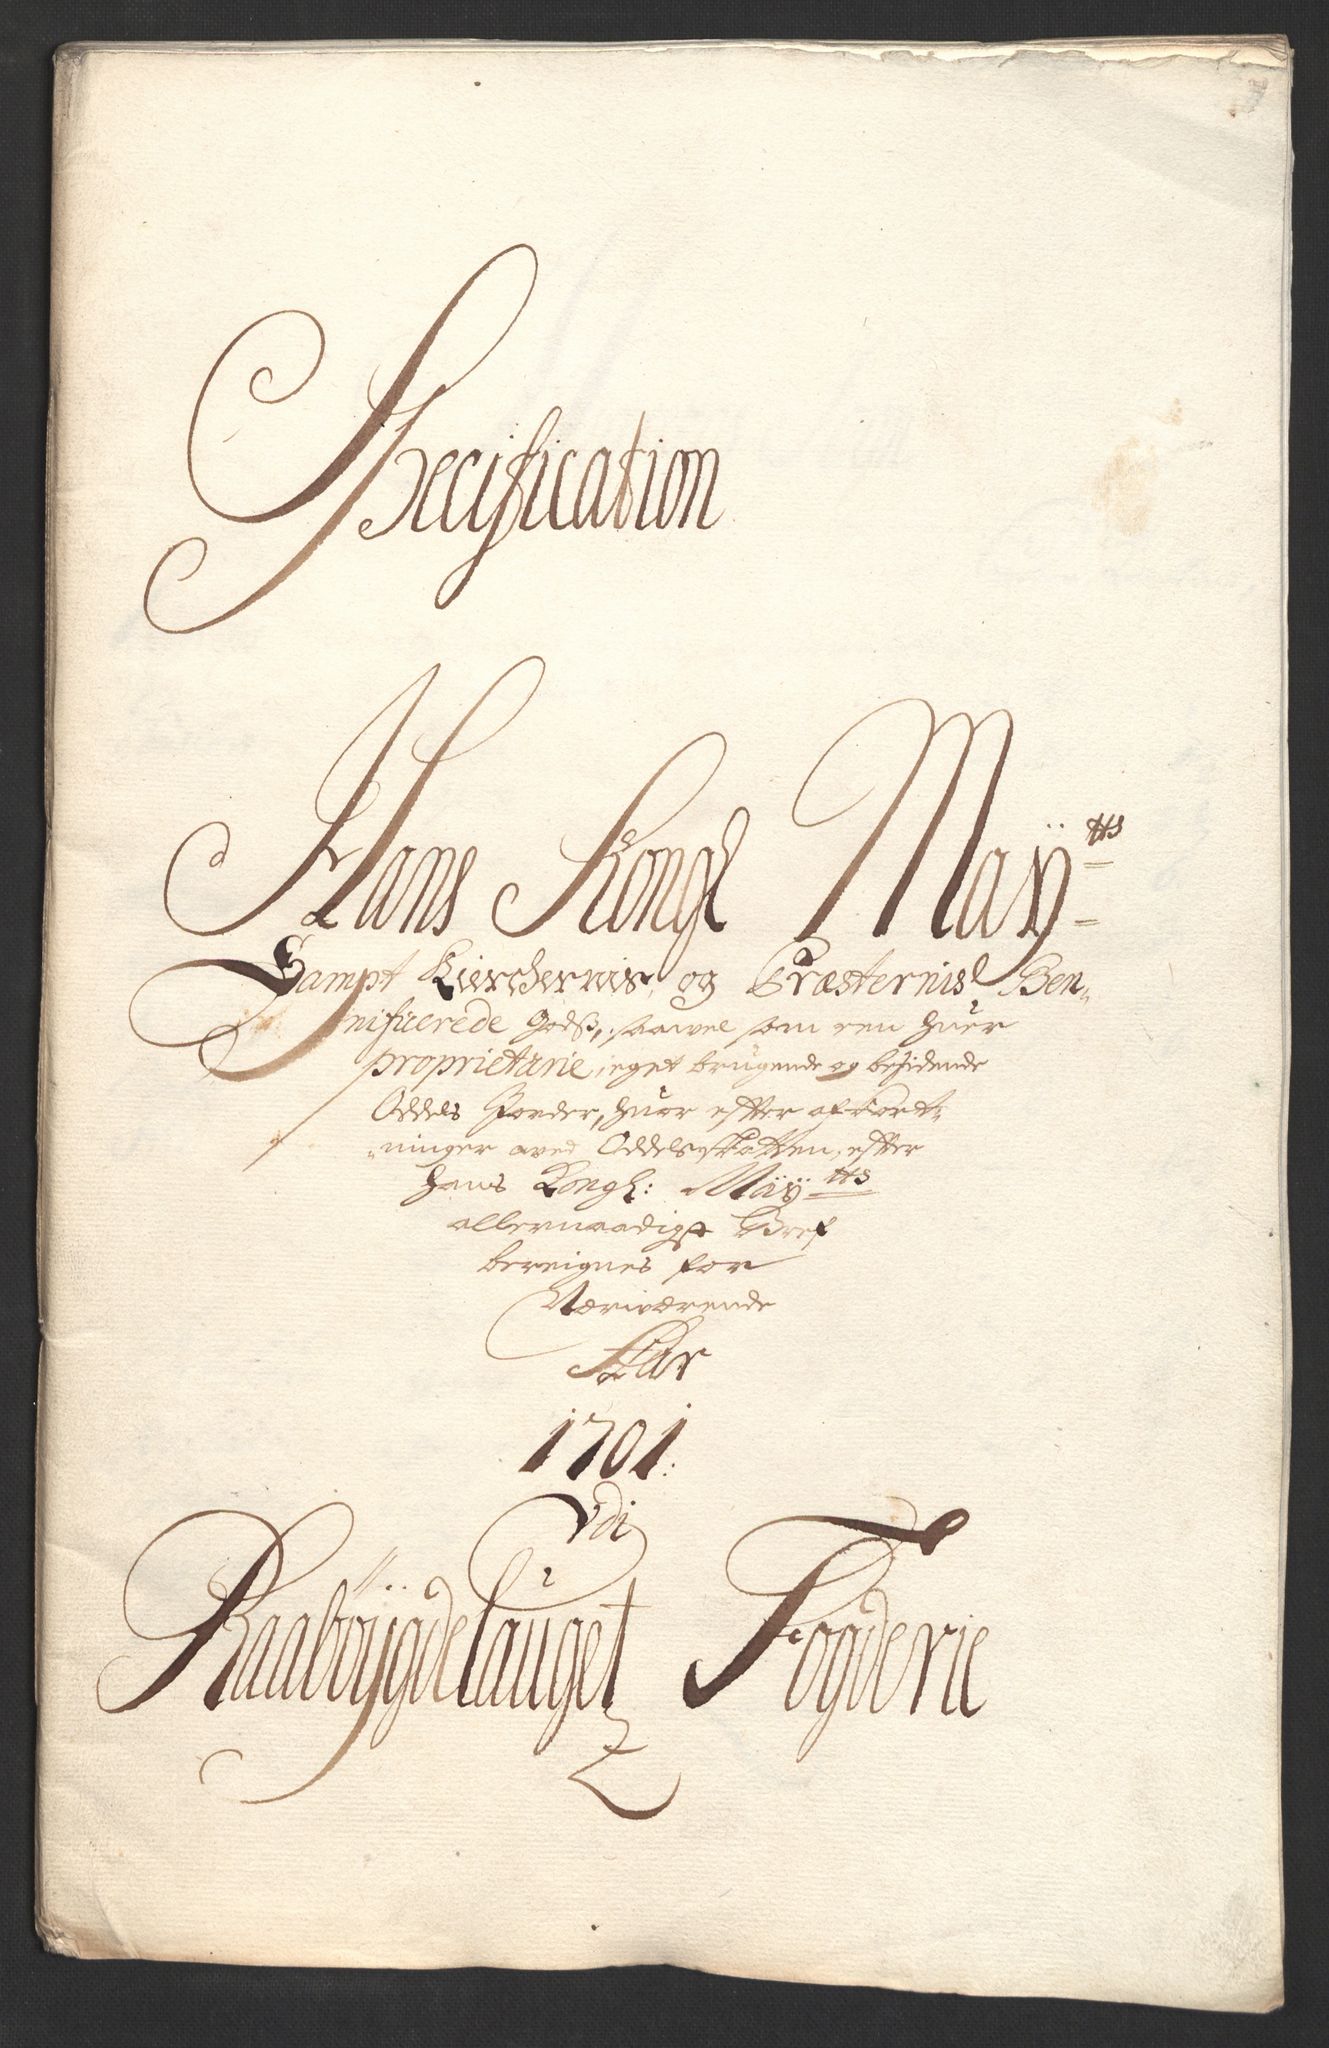 Specification
Hans Kongl Maÿtts
Sampt Kierchernis og Præsternis Ben-
nificerede Godß, saavel som een huer
proprietarie, eget brugende og besidende
Oddels Jorder, huor efter afkort-
ninger aved Oddelsskatten, efter
Hans Kongl: Maÿtts
allernaadigst Bref
bereignes for
Nærværende
Aar
1701:
Vdi
Raabÿgdelauget Fogderie